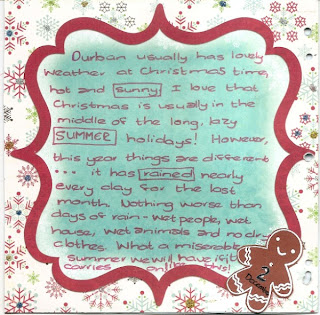 Durban usually has lovely
weather at Christmas time,
hot and sunny. I love that
Christmas is usually in the
middle of the long, lazy
SUMMER holidays! However,
this year things are different
... it has rained nearly
every day for the last
month. Nothing worse than
days of rain - wet people, wet
house, wet animals and no dry
clothes. What a miserable
summer we will have if it
carries on like this!
2
December